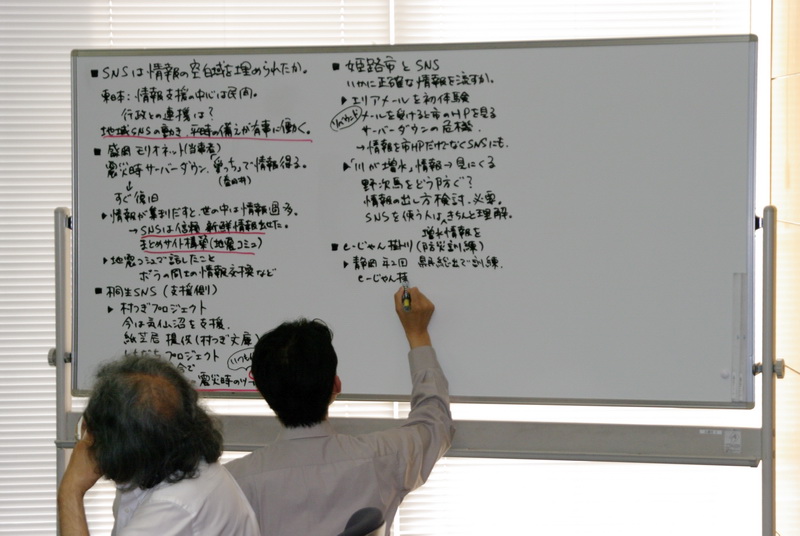 ■ SNSは情報の空白域を埋められたか。
東日本：情報支援の中心は民間。
行政との連携は？
地域SNSの動き、平時の備えが有事に働く。
■ 盛岡 モリオネット(当事者)
震災時サーバーダウン、「　っち」で情報得る。
(春日井)
↓
すぐ復旧
▶情報が集まりだすと、世の中は情報過多。
→ SNSは信頼 新鮮情報出せた。
まとめサイト構築(地震コミュ)
▶地震コミュで話したこと
ボラの同士の情報交換など
■ 桐生SNS (支援側)
▶ 村つぎプロジェクト
今は気仙沼を支援、
紙芝居 提供(村つぎ文庫)
プロジェクト
今で
震災時の
■ 姫路市とSNS
いかに正確な情報を流すか。
▶エリアメールを初体験
メールを受けると市のHPを見る
サーバーダウンの危機。
→情報を市HPだけでなくSNSにも。
▶「川が増水」情報→見にくる
野次馬をどう防ぐ？
情報の出し方検討、必要。
SNSを使う人は、きちんと理解。
増水情報を
■ e-じゃん掛川 (防災訓練)
▶静岡 年2回 県民総出で訓練.
e-じゃん掛